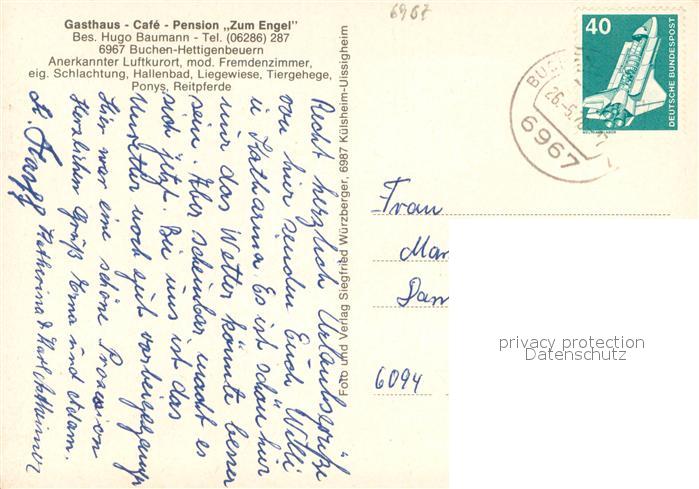 6967
Gasthaus - Café - Pension „Zum Engel"
Bes. Hugo Baumann - Tel. (06286) 287
6967 Buchen-Hettigenbeuern
Anerkannter Luftkurort, mod. Fremdenzimmer,
eig. Schlachtung, Hallenbad, Liegewiese, Tiergehege,
Ponys, Reitpferde
Recht herzlich Urlaubsgrüße
von hier senden Euch Willi
u Katharina. Es ist schön hier
nur das Wetter könnte besser
sein. Aber scheinbar macht es
sich jetzt. Bei uns ist das
Unwetter noch gut vorbeigegangen
Hier war eine schöne Prozession
Herzlichen Gruß Erna und Adam.
Katharina & Karl
Foto und Verlag Siegfried Würzberger, 6987 Külsheim-Uissigheim
40
DEUTSCHE BUNDESPOST
WELTRAUMLABOR
26.-5.
6967
Frau
Mar
Dam
6094
privacy protection
Datenschutz